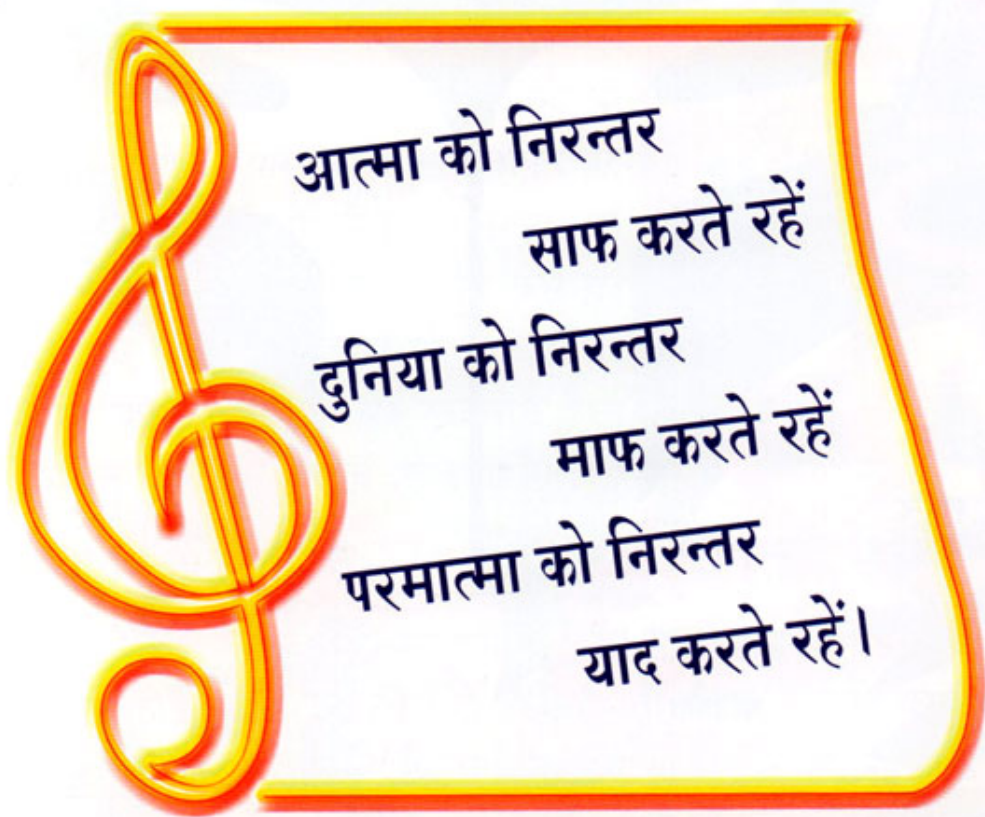 आत्मा को निरन्तर
साफ करते रहें
दुनिया को निरन्तर
माफ करते रहें
परमात्मा को निरन्तर
याद करते रहें।